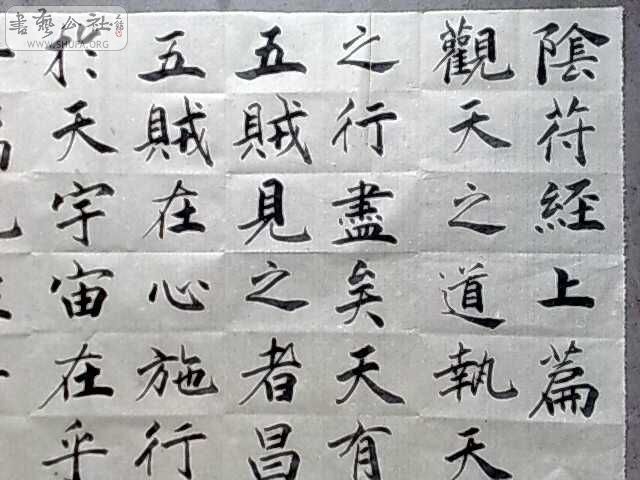 陰符経上篇
觀天之道執天
之行盡矣天有
五賊見之者昌
五賊在心施行
於天宇宙在乎
書藝公社
WWW.SHUFA.ORG